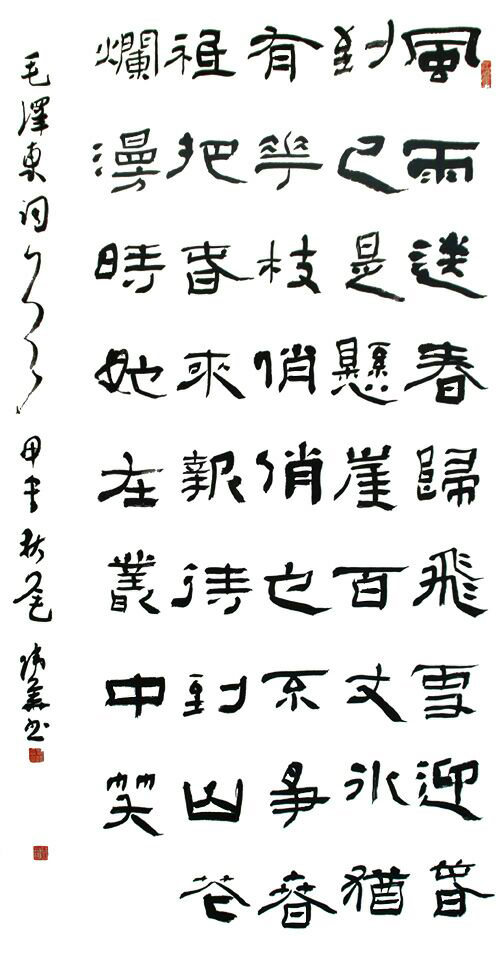 風雨送春歸飛雪迎春
到已是懸崖百丈冰猶
有花枝俏俏也不爭春
祗把春來報待到山花
爛漫時她在叢中笑
毛澤東词